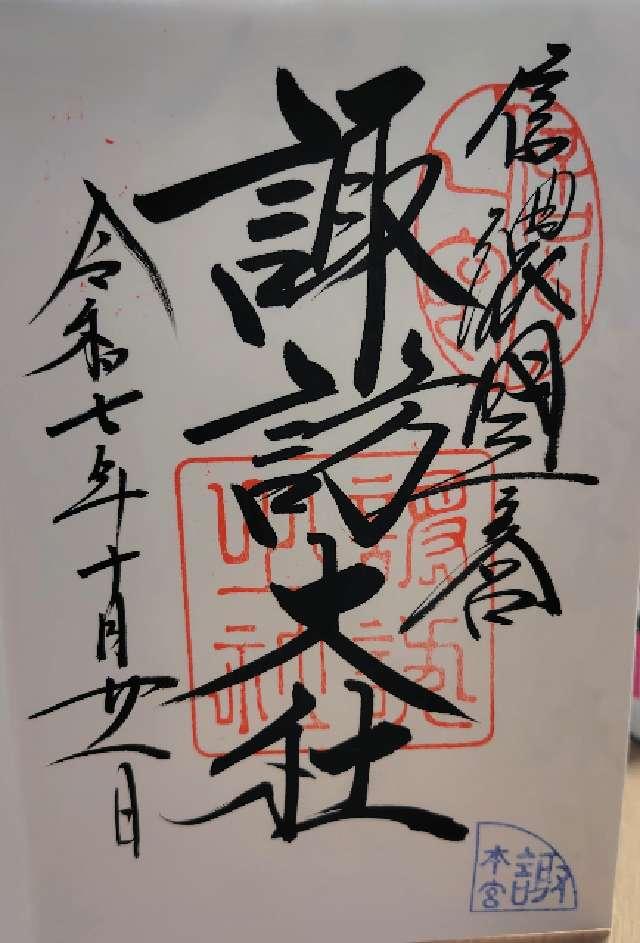 信濃國一之宮
諏訪大社
令和七年十月廿一日
諏訪
大社
本宮